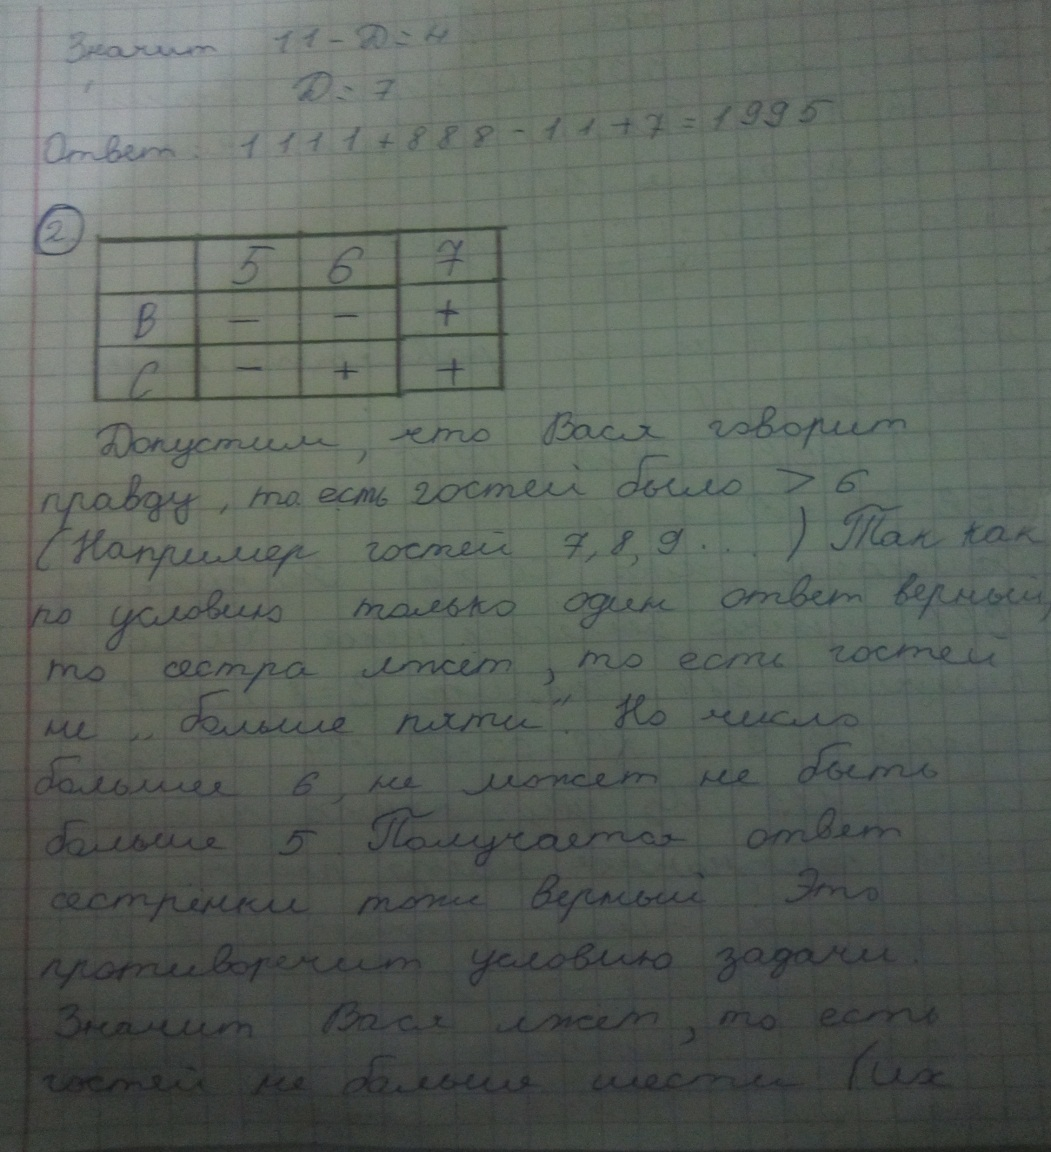 Значит 11-Д=4
Д=7
Ответ: 1111+888-11+7=1995
2
5 6 7
В - - +
С - + +
Допустим, что Вася говорит
правду, то есть гостей было > 6
(Например гостей 7, 8, 9 ... ) Так как
по условию только один ответ верный,
то сестра лжет, то есть гостей
не „больше пяти". Но число
больше 6, не может не быть
больше 5. Получается ответ
сестрёнки тоже верный. Это
противоречит условию задачи.
Значит Вася лжет, то есть
гостей не больше шести (их